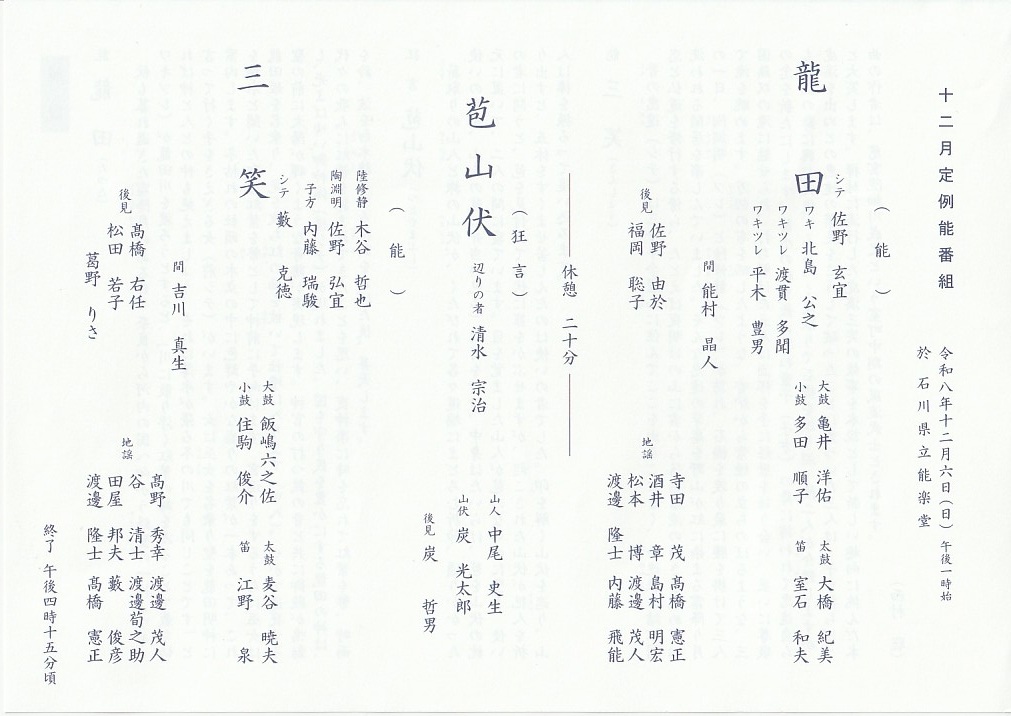 十二月定例能番組
令和八年十二月六日（日） 午後一時始
於 石川県立能楽堂
（能）
龍田
シテ 佐野 玄宜
ワキ 北島 公之
ワキツレ 渡貫 多聞
ワキツレ 平木 豊男
大鼓 亀井 洋佑
小鼓 多田 順子
太鼓 大橋 紀美
笛 室石 和夫
間 能村 晶人
後見
佐野 由於
福岡 聡子
地謡
寺田 茂 髙橋 憲正
酒井 章 島村 明宏
松本 博 渡邊 茂人
渡邊 隆士 内藤 飛能
休憩 二十分
（狂言）
苞山伏
辺りの者 清水 宗治
山人 中尾 史生
山伏 炭 光太郎
後見 炭 哲男
（能）
三笑
陸修静 木谷 哲也
陶淵明 佐野 弘宜
子方 内藤 瑞駿
シテ 藪 克徳
大鼓 飯嶋六之佐
小鼓 住駒 俊介
太鼓 麦谷 暁夫
笛 江野 泉
間 吉川 真生
後見
髙橋 右任
松田 若子
葛野 りさ
地謡
髙野 秀幸 渡邊 茂人
谷 清士 渡邊荀之助
田屋 邦夫 藪 俊彦
渡邊 隆士 髙橋 憲正
終了 午後四時十五分頃